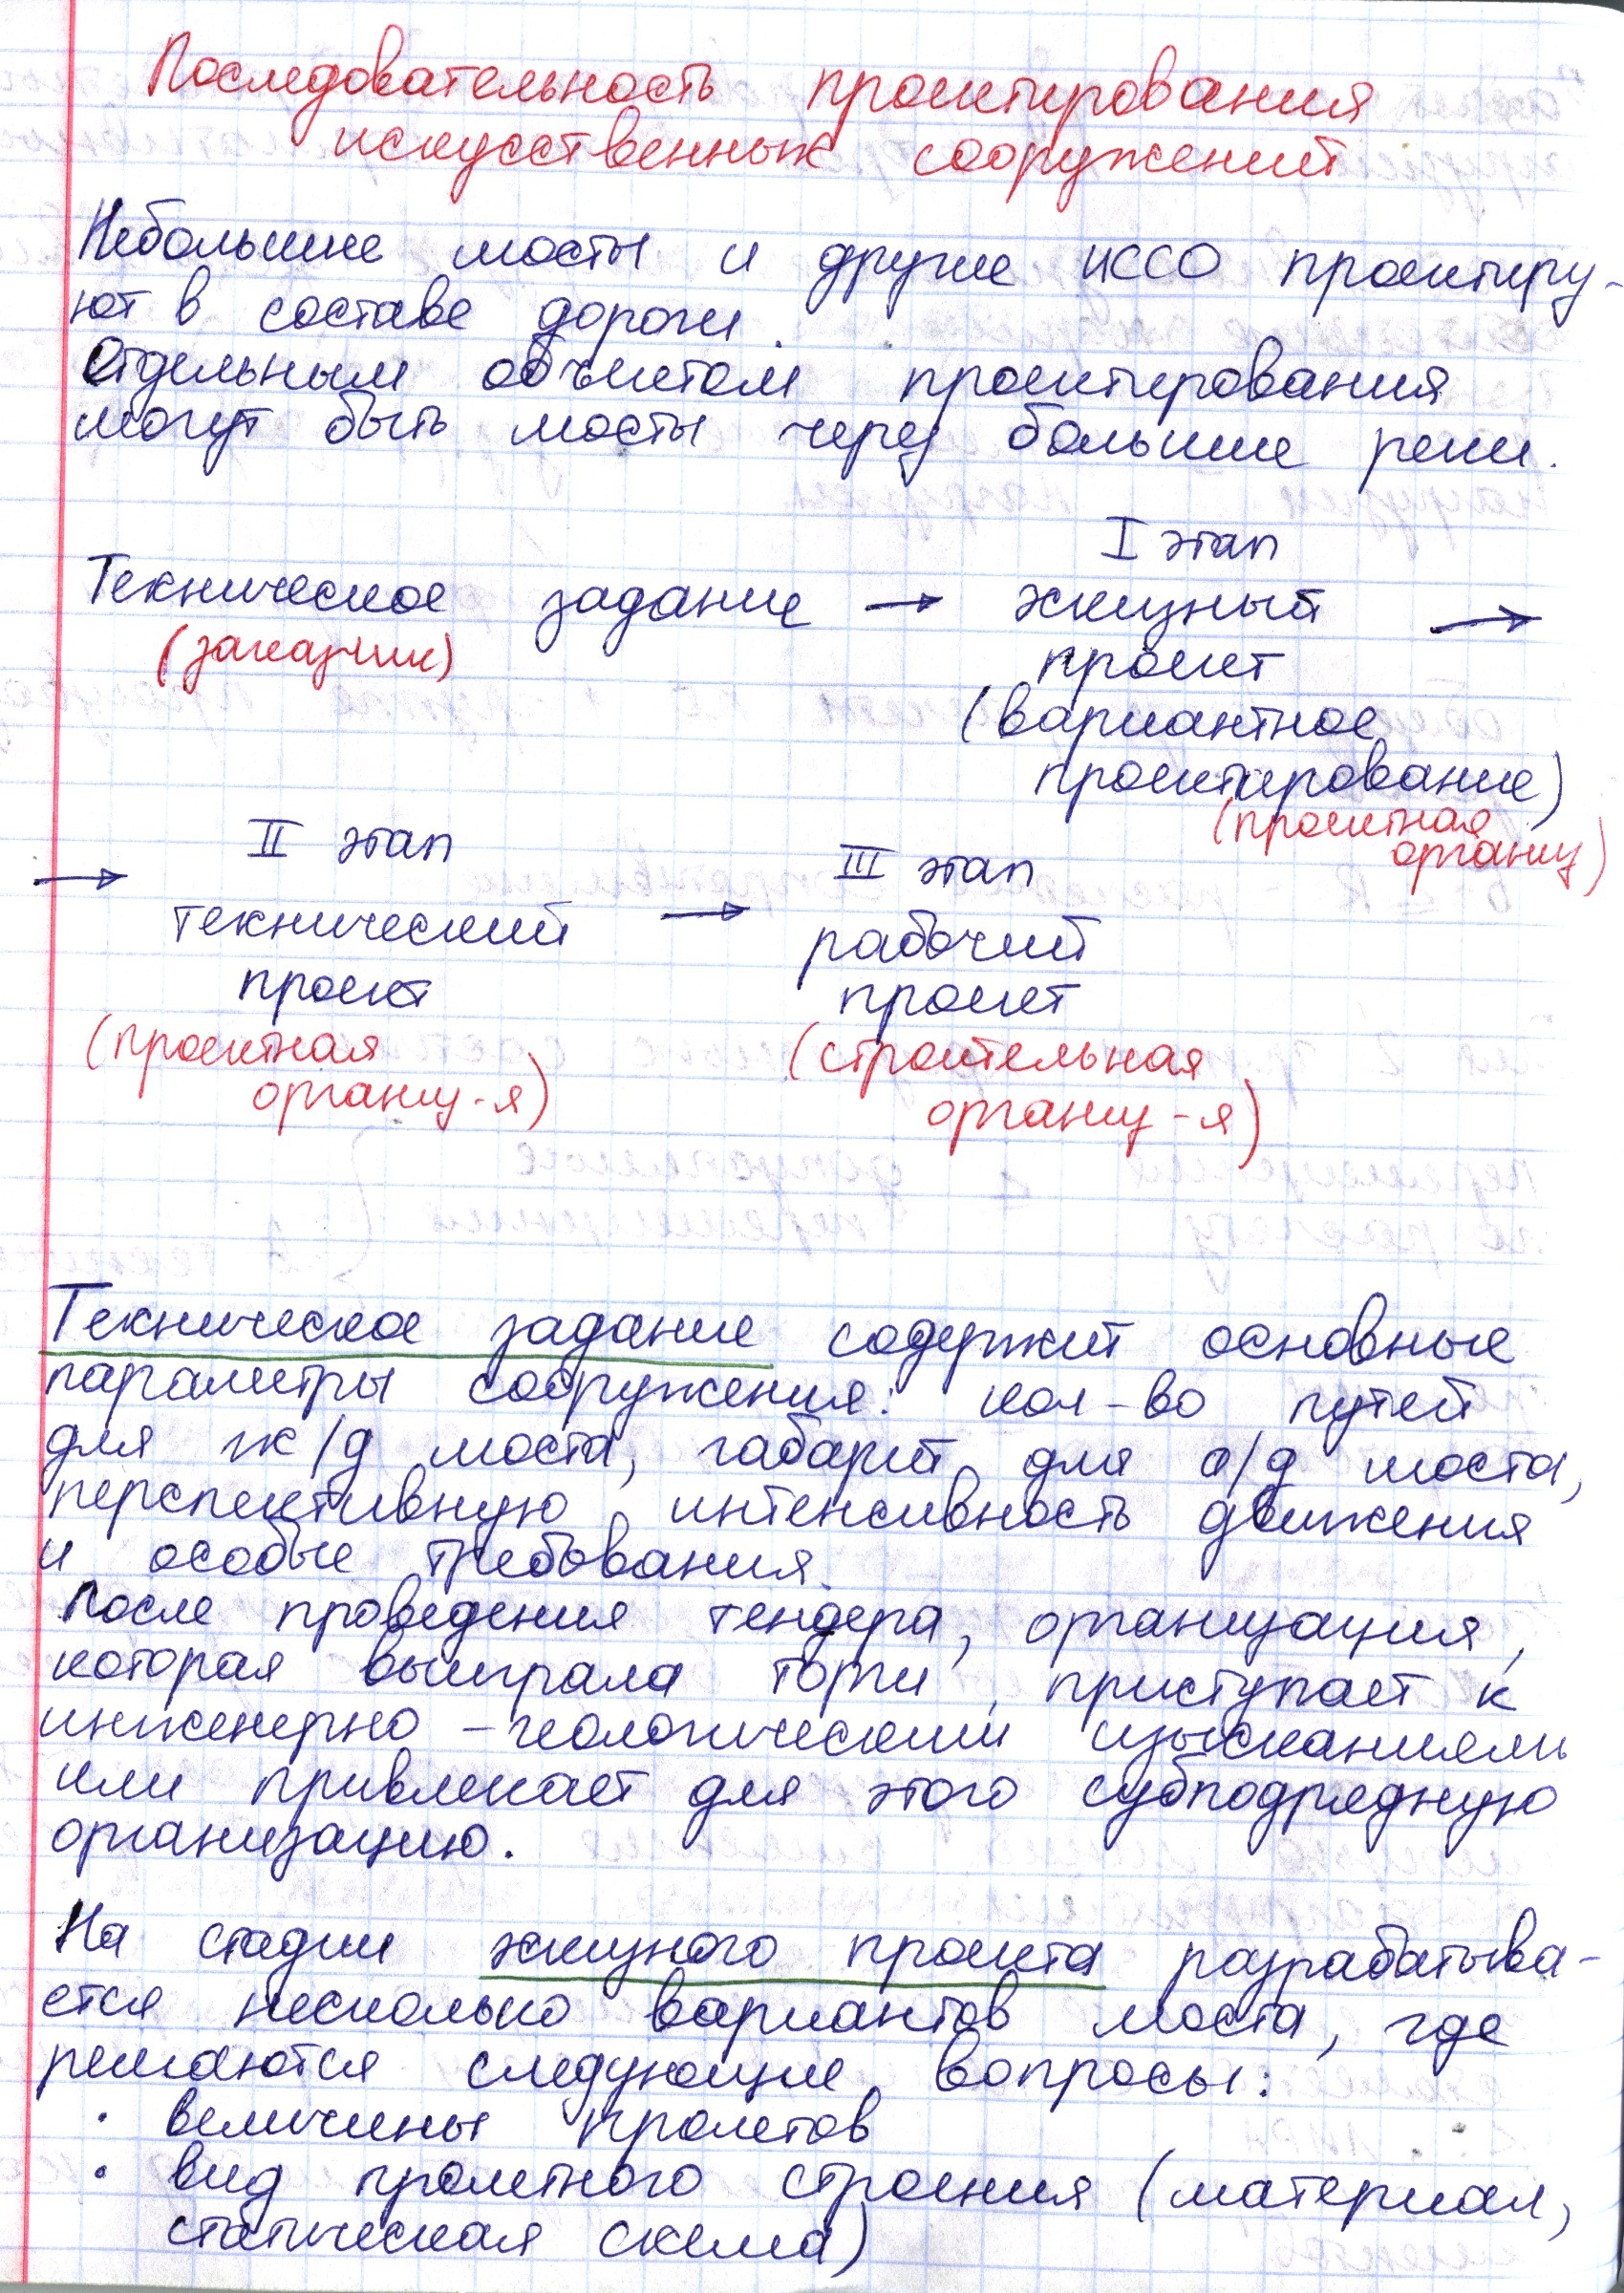 Последовательность проектирования
искусственных сооружений
Небольшие мосты и другие ИССО проектиру-
ют в составе дороги.
Отдельным объектом проектирования
могут быть мосты через большие реки.
I этап
Техническое задание → эскизный →
(заказчик) проект
(вариантное
проектирование)
(проектная
организ)
II этап III этап
→ технический → рабочий
проект проект
(проектная (строительная
организ-я) организ-я)
Техническое задание содержит основные
параметры сооружения: кол-во путей
для ж/д моста, габарит для а/д моста,
перспективную интенсивность движения
и особые требования.
После проведения тендера, организация,
которая выиграла торги, приступает к
инженерно-геологическим изысканиями
или привлекает для этого субподрядную
организацию.
На стадии эскизного проекта разрабатыва-
ется несколько вариантов моста, где
решаются следующие вопросы:
· величины пролетов
· вид пролетного строения (материал,
статическая схема)